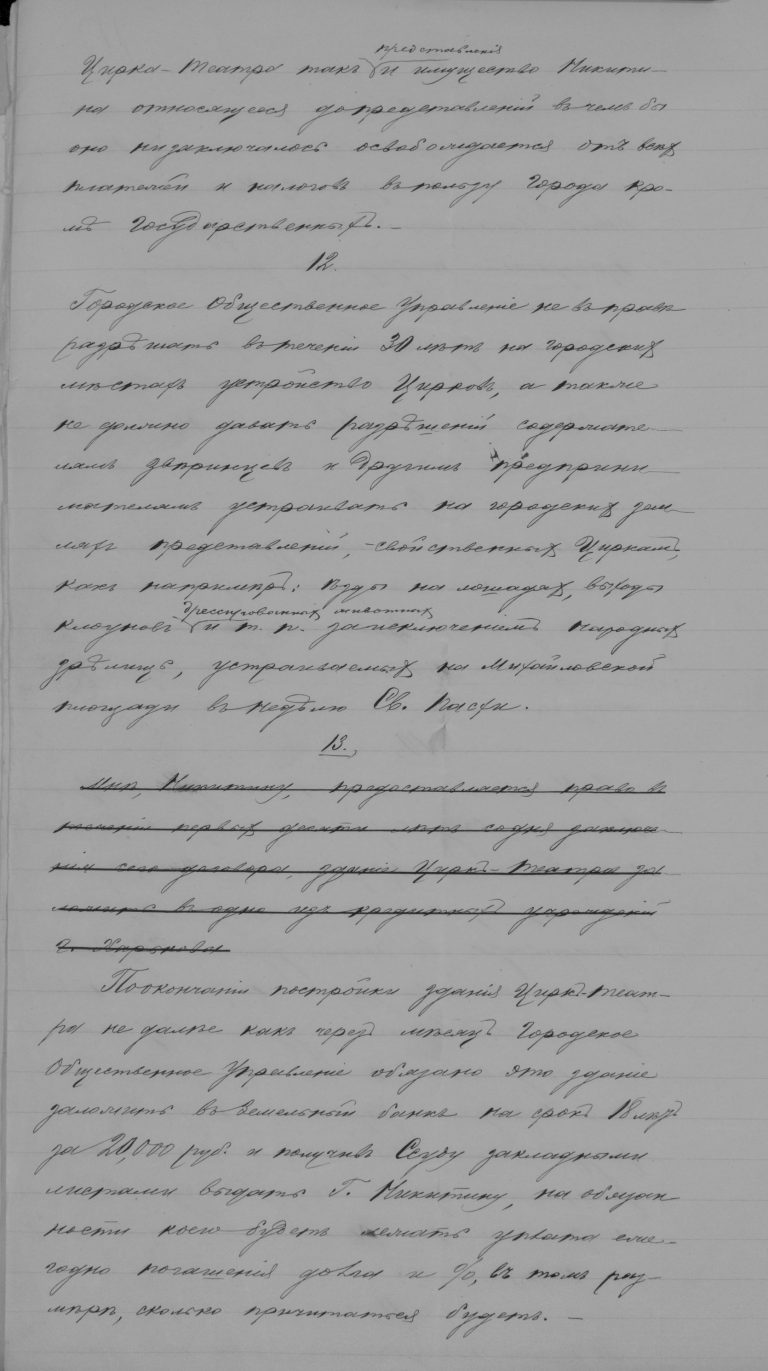 представленія
Цирка-Театра такъ и имущество Никити-
на относящееся допредставленій въ чемъ бы
оно низаключалось освобождается отъ всѣх
платежей и налоговъ въ пользу Города кро-
мѣ Государственныхъ. –
12.
Городское Общественное Управленіе не въ правѣ
разрѣшать въ теченіи 30 лѣтъ на городских
мѣстахъ устройство Цирковъ, а также
не должно давать разрѣшеній содержате-
лямъ звѣринцевъ и другимъ предприни-
мателямъ устраивать на городских зем-
лях представленій, -свойственных Циркамъ,
какъ напримѣръ: ѣзды на лошадях, выходы
дрессированных животных
клоуновъ и т. п. заисключеніемъ народных
зрѣлищъ, устраиваемых на Михайловской
площади въ недѣлю Св. Пасхи.
13.
Мнѣ, Никитину, предоставляется право въ
теченіи первых десяти лѣтъ содня заключе-
нія сего договора, зданіе Циркъ-Театра за
ложить въ одно изъ кредитных учрежденій
г. Харькова
Поокончаніи постройки зданія Циркъ-Теат-
ра не далѣе какъ черезъ мѣсяцъ Городское
Общественное Управленіе обязано это зданіе
заложить въ Земельный банкъ на срокъ 18 лѣтъ
за 20,000 руб. и получивъ Ссуду закладными
листами выдать Г. Никитину, на обязан
ности коего будетъ лежать уплата еже-
годно погашенія долга и %, въ томъ раз-
мѣрѣ, сколько причитаться будетъ. –